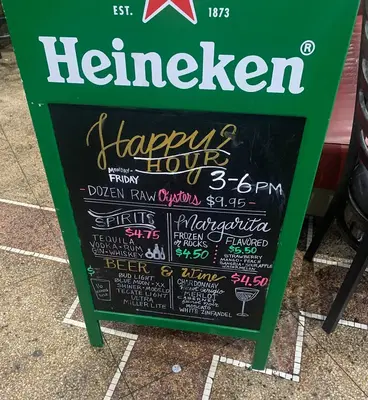 EST. 1873
Heineken®
Happy
HOUR
MONDAY-
FRIDAY
3-6PM
DOZEN RAW Oysters $9.95
SPIRITS
$4.75
TEQUILA
VODKA • RUM
GIN • WHISKEY
Margarita
FROZEN
OR ROCKS
$4.50
FLAVORED
$6.50
STRAWBERRY
MANGO • PEACH
BEER & Wine
BUD LIGHT
BLUE MOON • XX
SHINER • MODELO
TECATE LIGHT
ULTRA
MILLER LITE
CHARDONNAY
MERLOT
CABERNET
MOSCATO
WHITE ZINFANDEL
$4.50